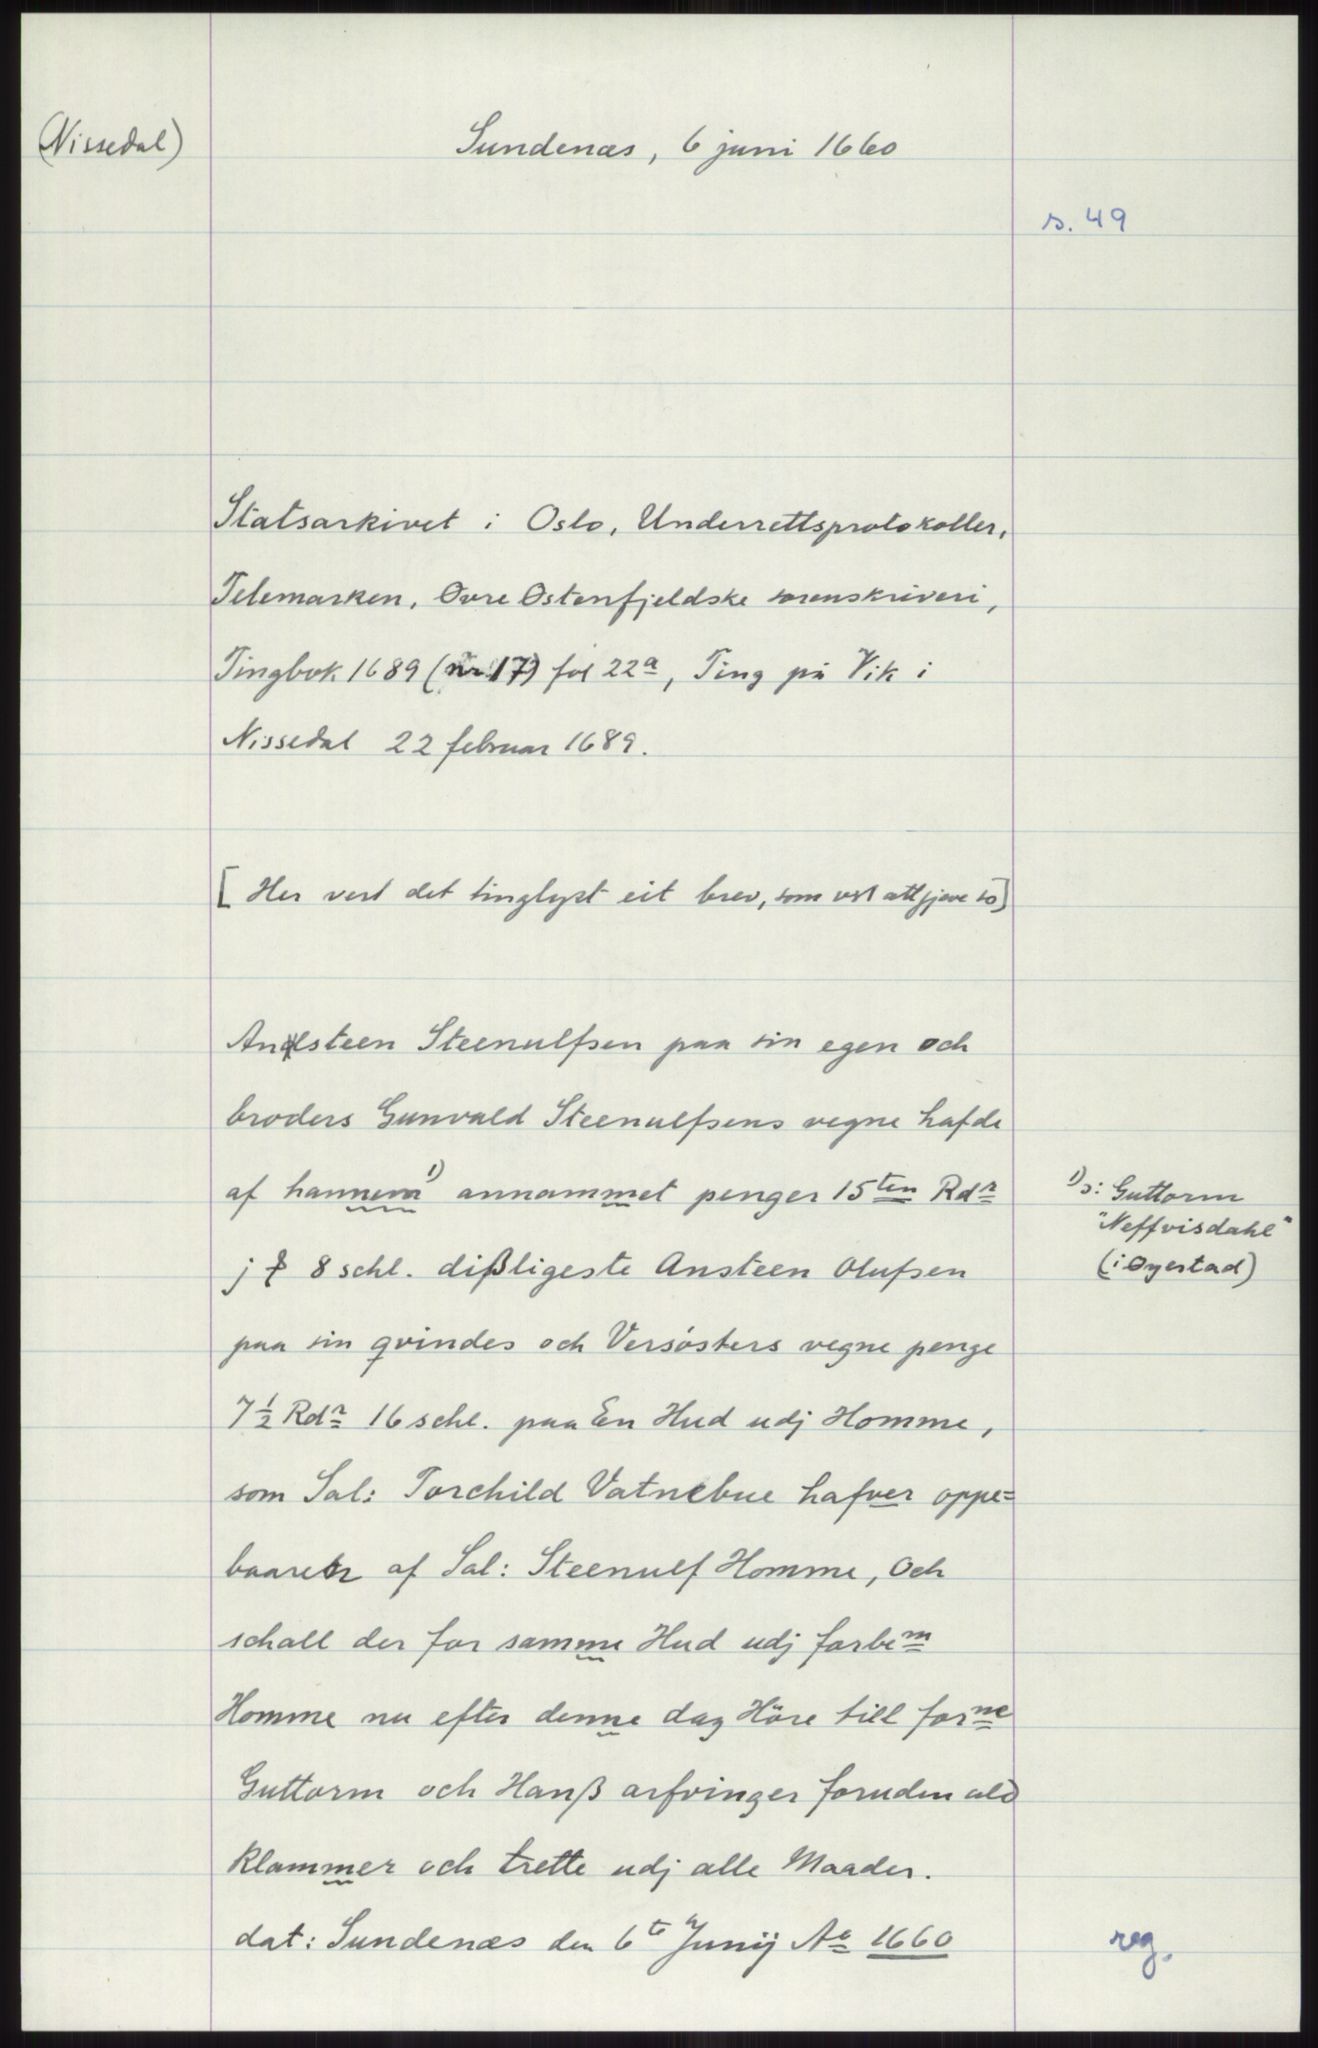 (Nissedal)
Sundenæs, 6 juni 1660
s. 49
Statsarkivet i Oslo, Underrettsprotokoller,
Telemarken, Øvre Østenfjeldske sorenskriveri,
Tingbok 1689 (nr 17) fol 22a, Ting på Vik i
Nissedal 22 februar 1689.
[Her vert det tinglyst eit brev, som vert attgjeve so]
Anslsteen Steenulfsen paa sin egen och
broders Gunvald Steenulfsens vegne hafde
af hannem 1) annammet penger 15ten Rdr
j 8 schl. dißligeste Ansteen Olufsen
paa sin qvindes och Versösters vegne penge
7 1/2 Rdr 16 schl. paa En Hud udj Homme,
som Sal: Torchild Vatnebue hafver oppe=
baaren af Sal: Steenulf Homme, Och
schall der for samme Hud udj forbem
Homme nu efter denne dag Höre till forne
Guttorm och Hanß arfvinger foruden ald
klammer och trette udj alle Maader.
dat: Sundenæs den 6te Junij Ao 1660
1) ɔ: Guttorm
"Neffvisdahl"
(i Øyestad)
reg.